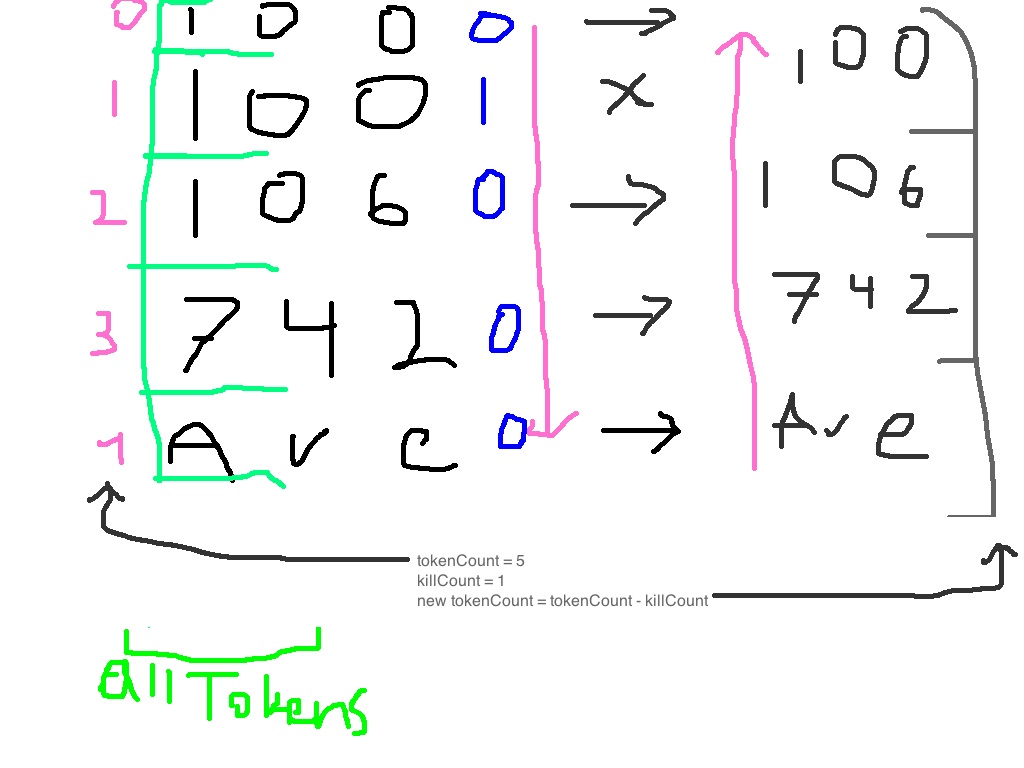 0 1 0 0 0 → 1 0 0
1 1 0 0 1 x
2 1 0 6 0 → 1 0 6
3 7 4 2 0 → 7 4 2
4 A v e 0 → A v e
tokenCount = 5
killCount = 1
new tokenCount = tokenCount - killCount
allTokens